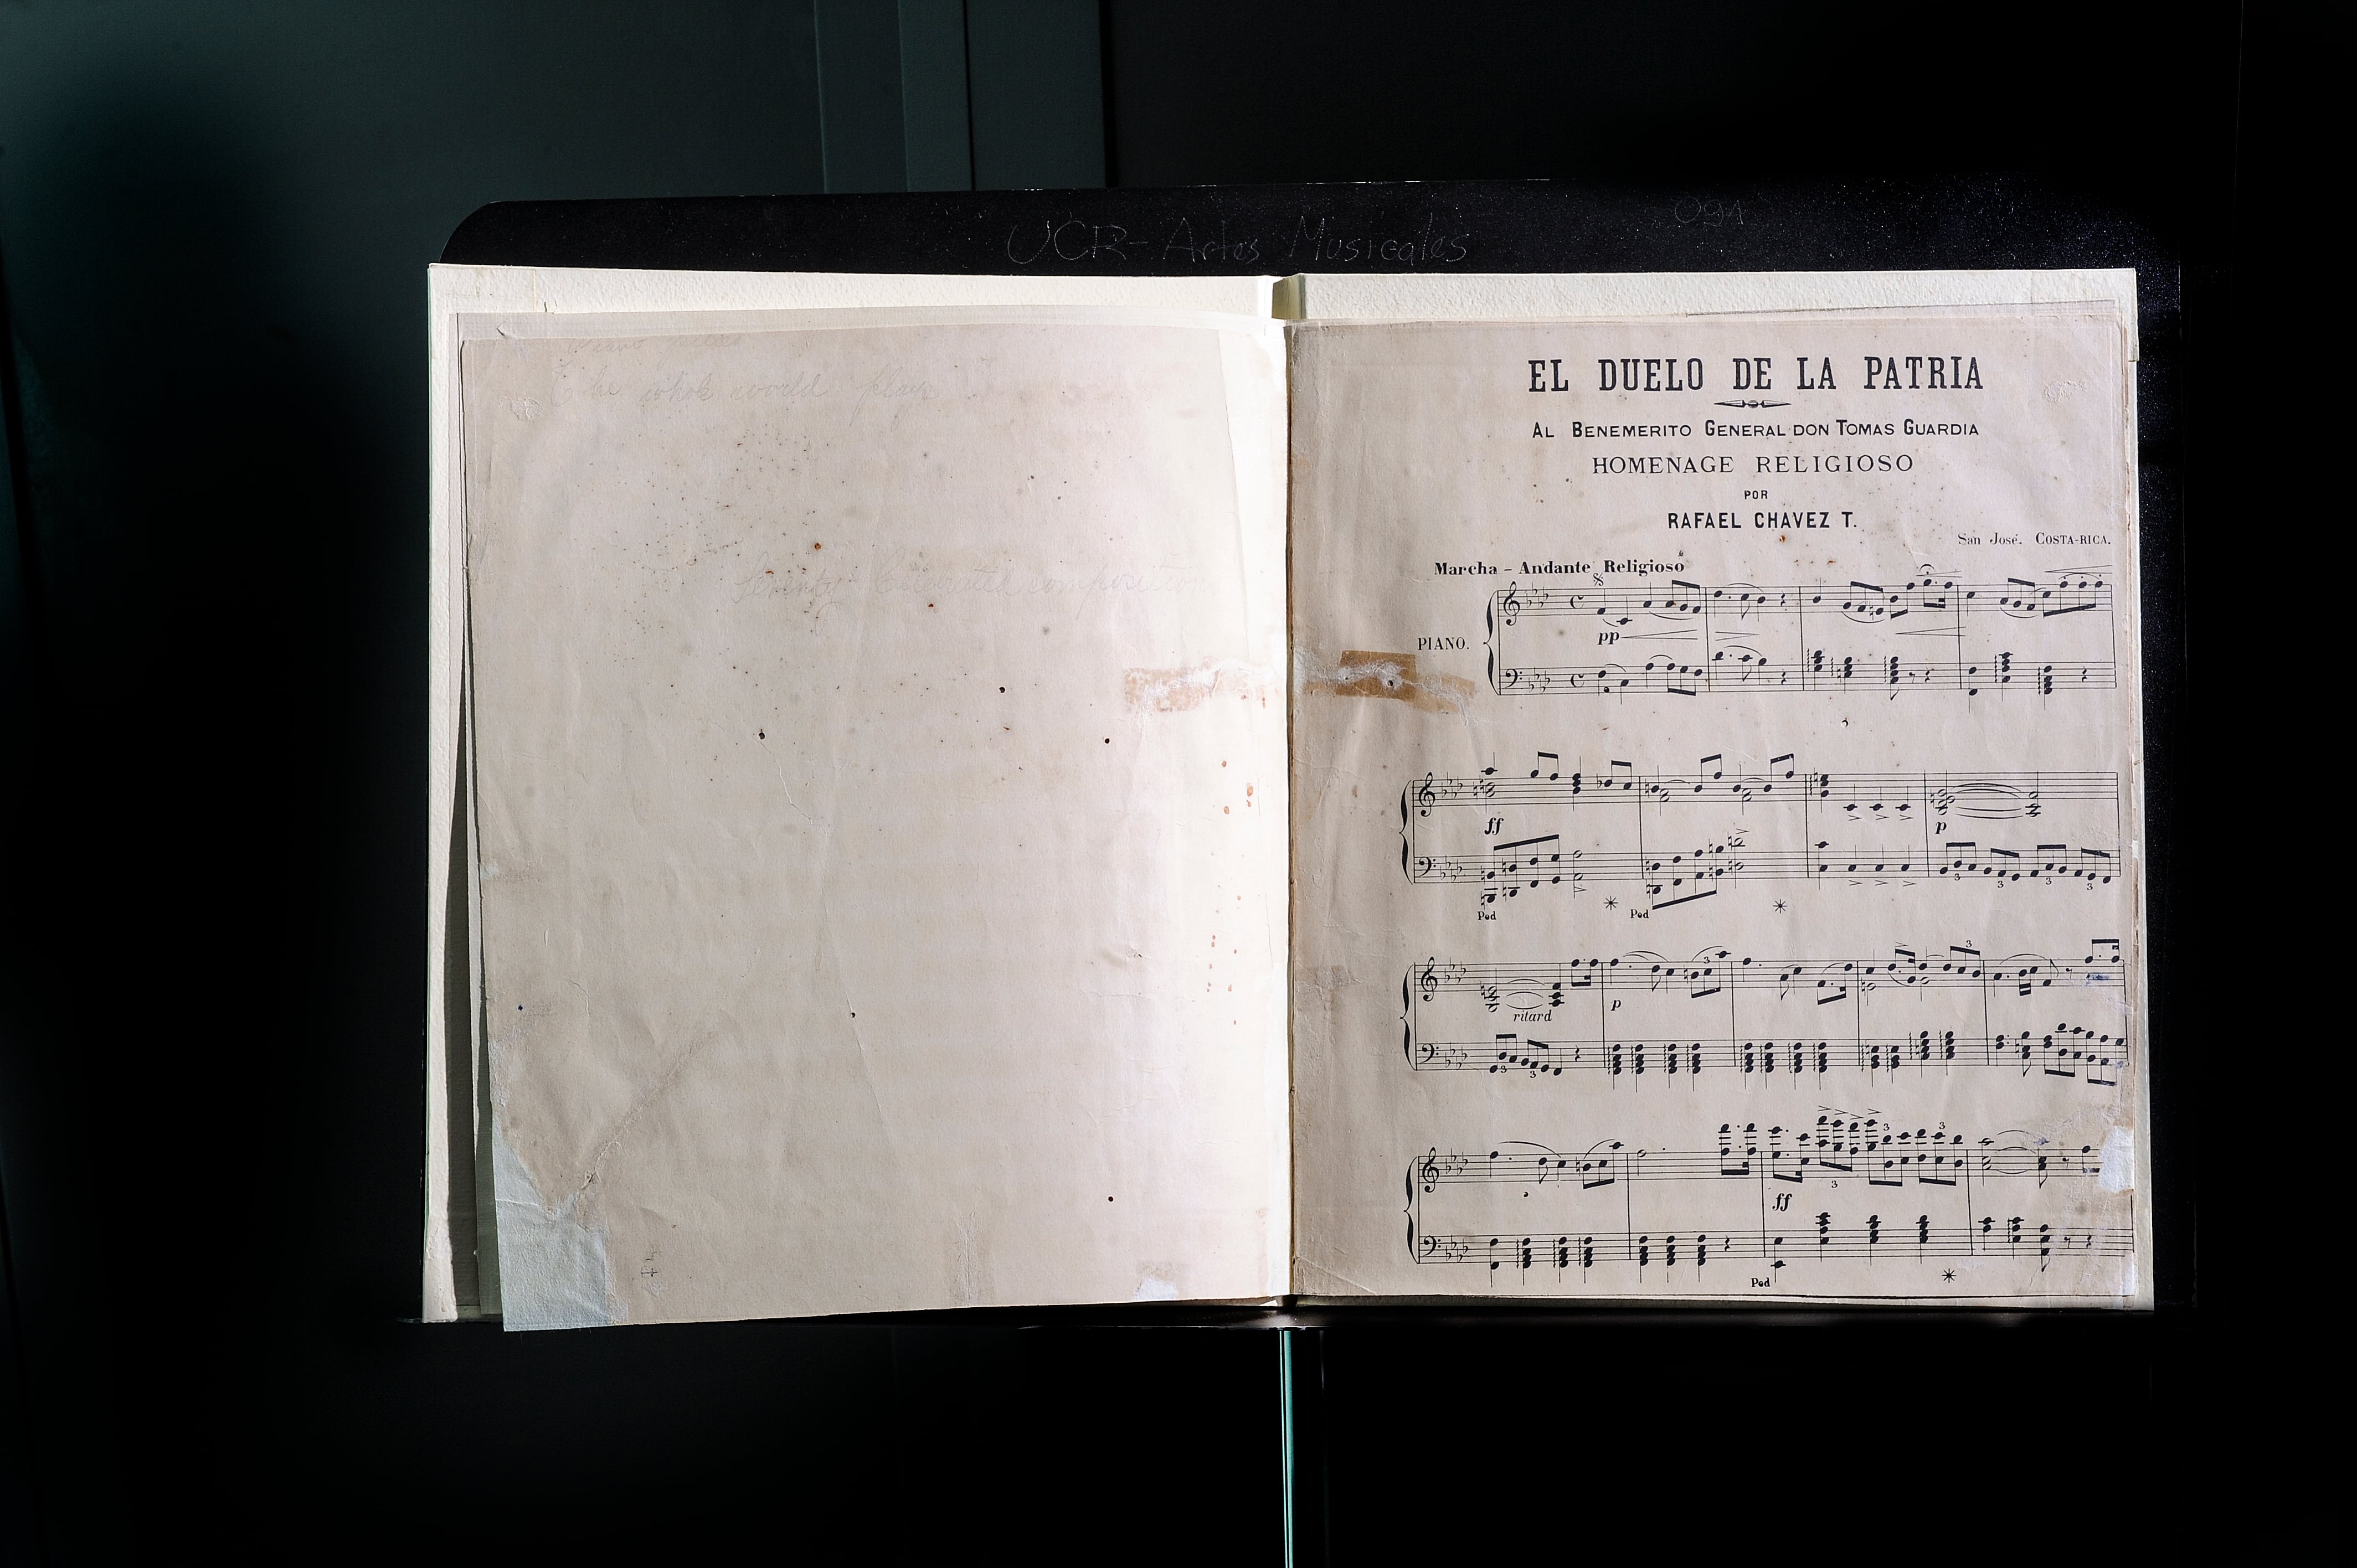 UCR-Artes Musicales
091
The whole world plays
EL DUELO DE LA PATRIA
AL BENEMERITO GENERAL DON TOMAS GUARDIA
HOMENAGE RELIGIOSO
POR
RAFAEL CHAVEZ T.
San José. COSTA-RICA.
Marcha - Andante Religioso
PIANO.
pp
ff
p
Ped
Ped
3 3 3 3
3
3
ritard
p
3 3
3 3
ff
3
Ped